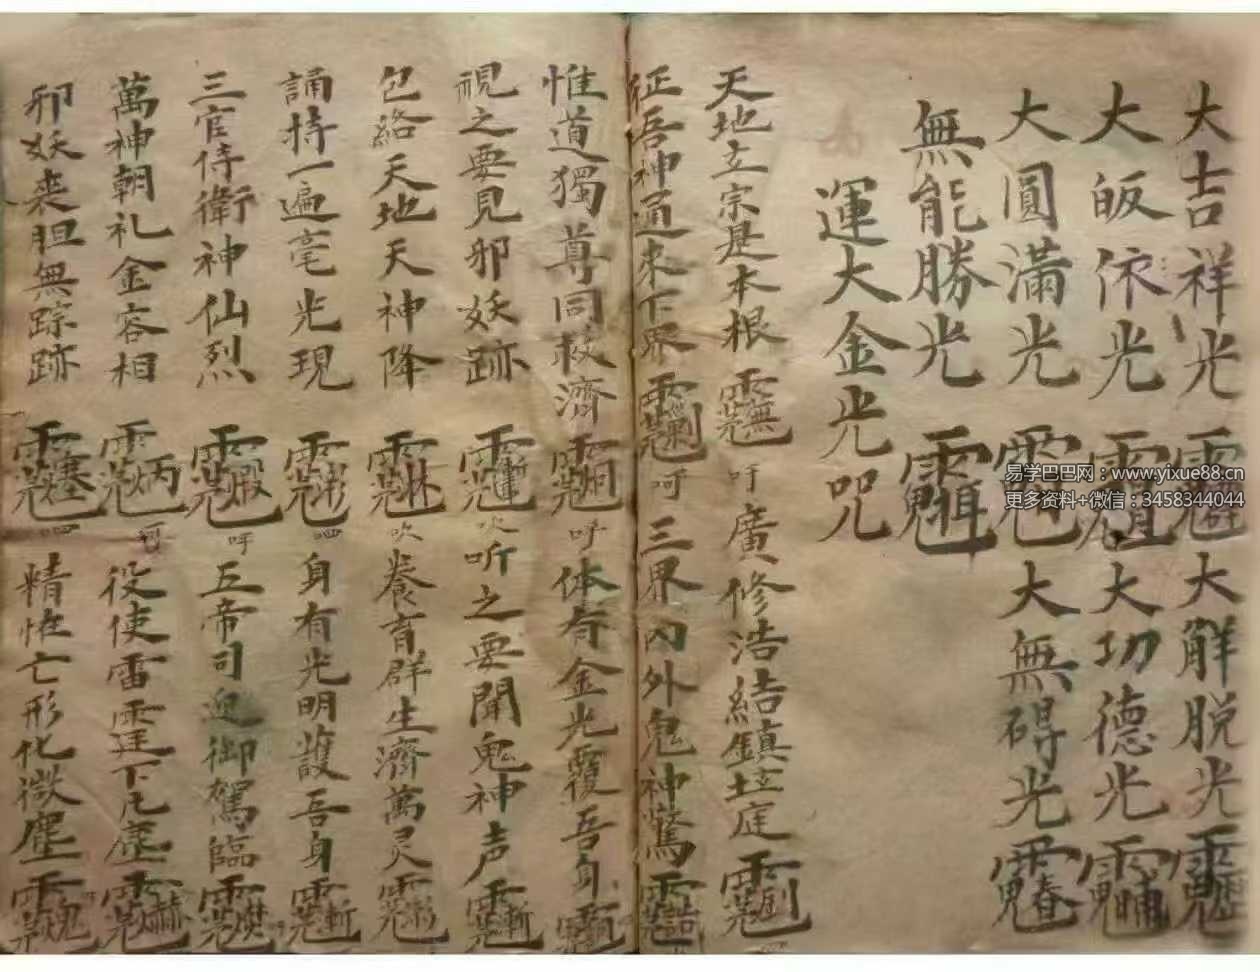 大吉祥光 大解脱光
大皈依光 大功德光
大圓滿光 大無碍光
無能勝光
運大金光咒
天地立宗是本根 吽 廣修浩結鎮坛庭
征吾神通來下界 呵 三界内外鬼神驚
惟道獨尊同救濟 呼 体有金光覆吾身
視之要見邪妖跡 吹 听之要聞鬼神声
包絡天地天神降 吹 養育群生濟萬灵
誦持一遍毫光現 呬 身有光明護吾身
三官侍衛神仙烈 呼 五帝司迎御駕臨
萬神朝礼金容相 呵 役使雷霆下凡塵
邪妖丧胆無踪跡 呬 精怪亡形化微塵
易学巴巴网：www.yixue88.cn
更多资料+微信：3458344044